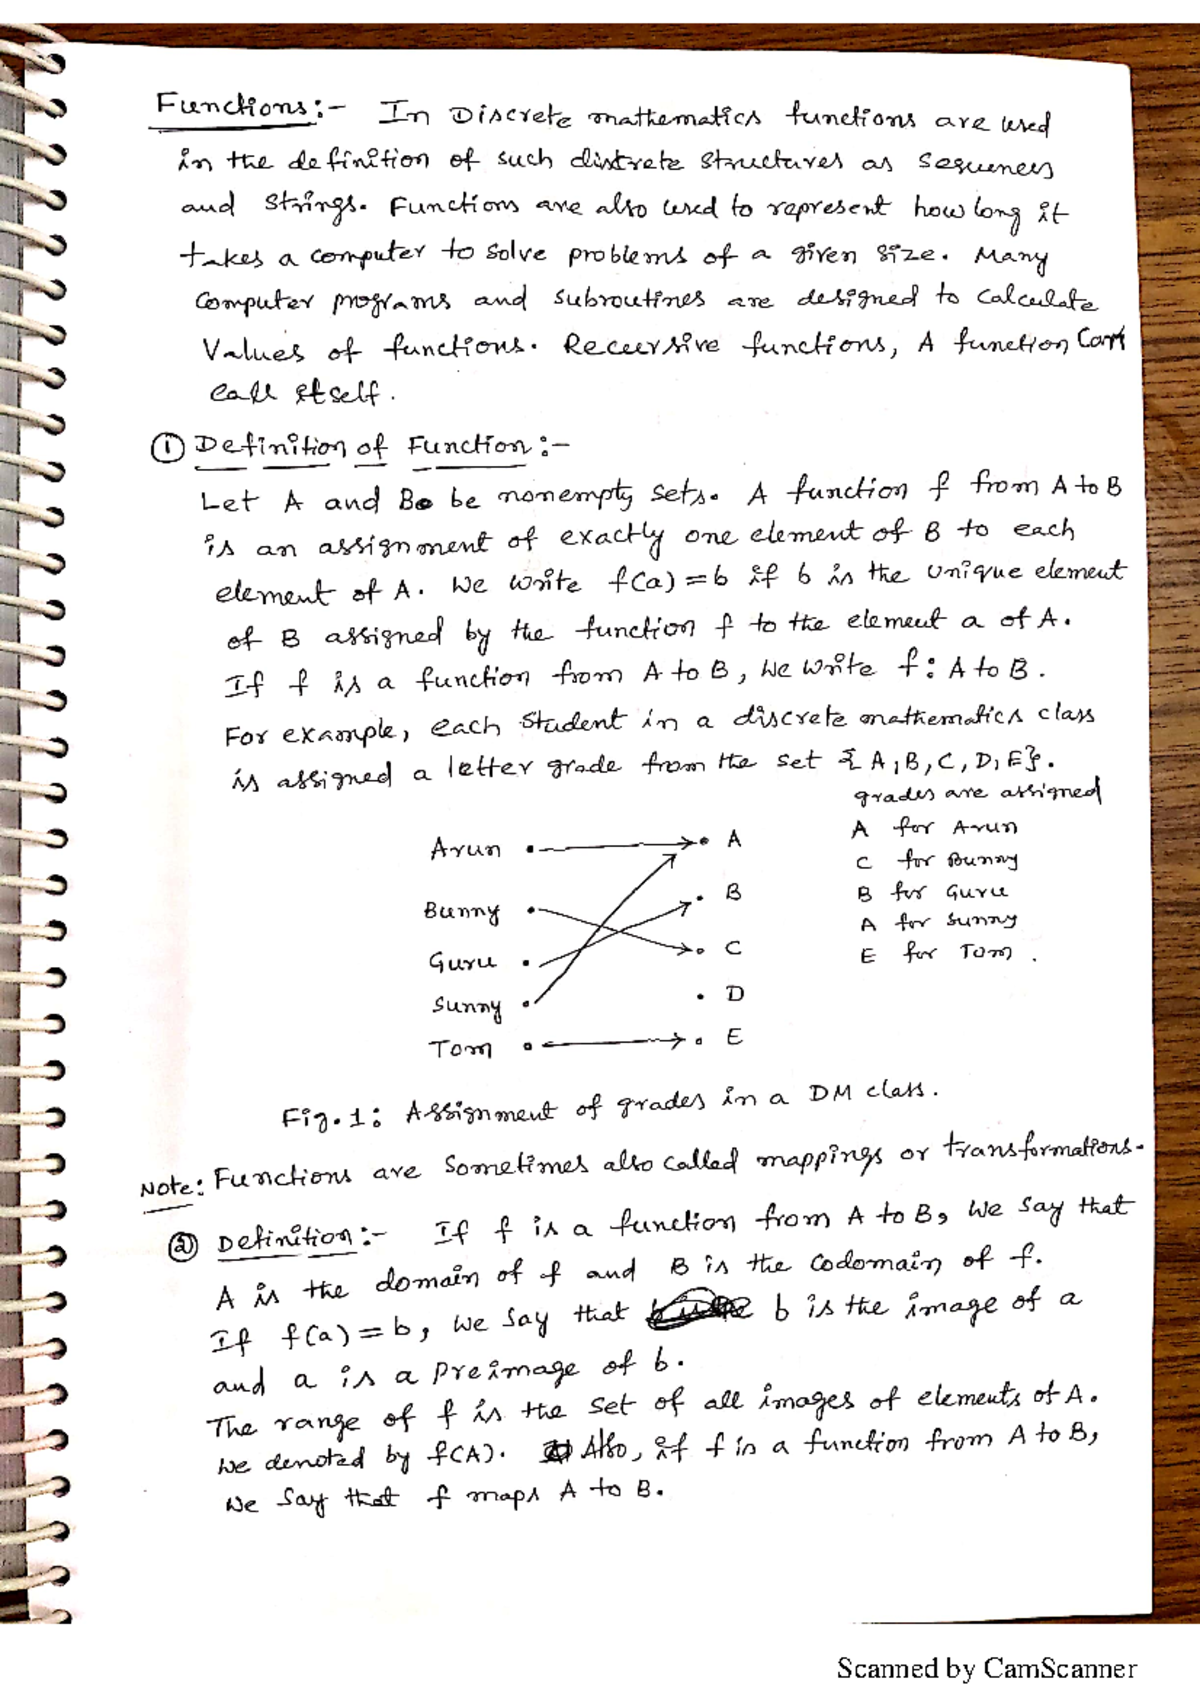 Functions:- In Discrete mathematics functions are used
in the definition of such distrete structures as sequences
and strings. Functions are also used to represent how long it
takes a computer to solve problems of a given size. Many
Computer programs and subroutines are designed to calculate
Values of functions. Recursive functions, A function Can
call itself.
① Definition of Function:-
Let A and B be nonempty sets. A function f from A to B
is an assignment of exactly one element of B to each
element of A. We write f(a) = b if b is the unique element
of B assigned by the function f to the element a of A.
If f is a function from A to B, we write f: A to B.
For example, each student in a discrete mathematics class
is assigned a letter grade from the set {A, B, C, D, E}.
grades are assigned
A for Arun
C for Bunny
B for Guru
A for Sunny
E for Tom.
Arun A
Bunny B
Guru C
Sunny D
Tom E
Fig.1: Assignment of grades in a DM class.
Note: Functions are sometimes also called mappings or transformations.
② Definition:- If f is a function from A to B, we say that
A is the domain of f and B is the codomain of f.
If f(a) = b, we say that b is the image of a
and a is a preimage of b.
The range of f is the set of all images of elements of A.
We denoted by f(A). Also, if f is a function from A to B,
We say that f maps A to B.
Scanned by CamScanner